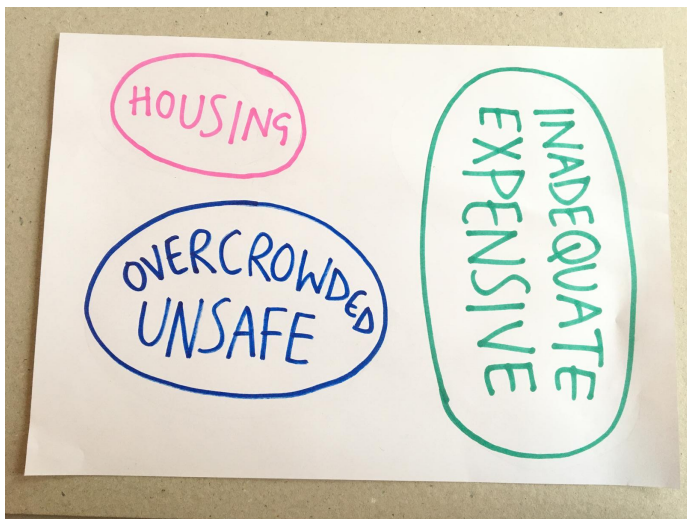 HOUSING
OVERCROWDED
UNSAFE
INADEQUATE
EXPENSIVE